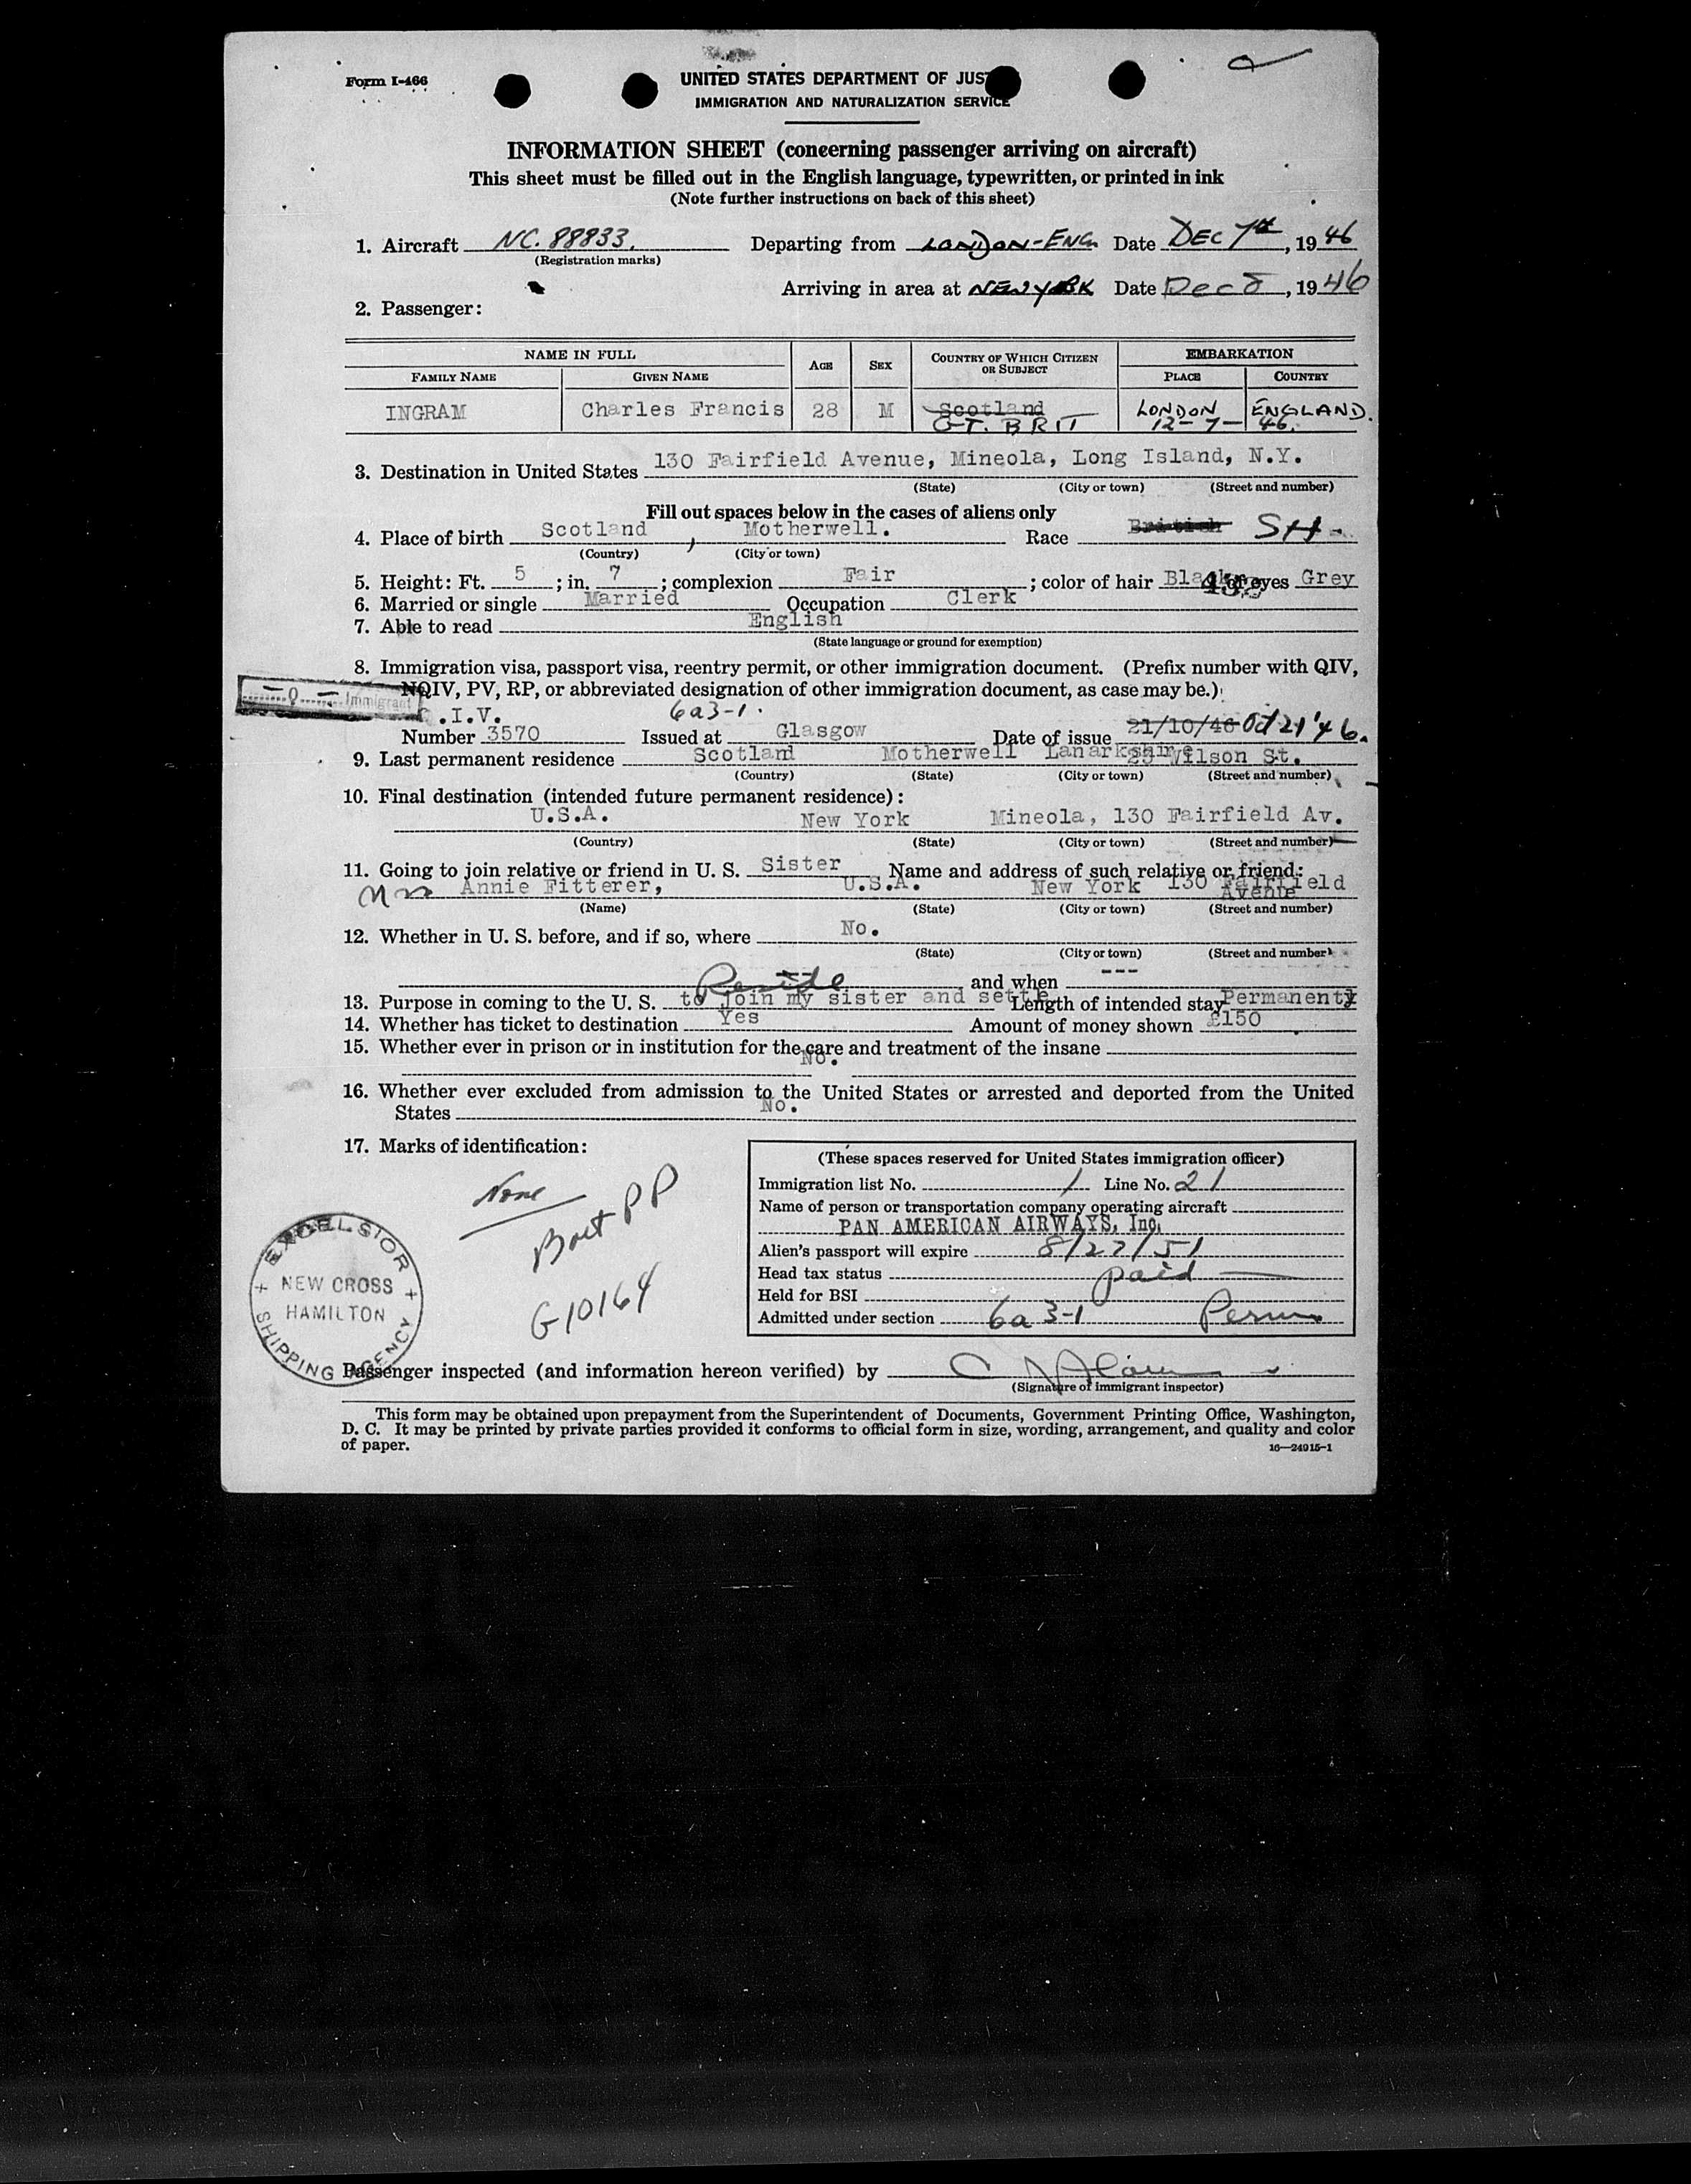 Form I-466
UNITED STATES DEPARTMENT OF JUST
IMMIGRATION AND NATURALIZATION SERVICE
INFORMATION SHEET (concerning passenger arriving on aircraft)
This sheet must be filled out in the English language, typewritten, or printed in ink
(Note further instructions on back of this sheet)
1. Aircraft NC. 88833. Departing from LONDON-ENG. Date DEC 7th, 1946
(Registration marks)
Arriving in area at NEW YORK Date Dec 8, 1946
2. Passenger:
NAME IN FULL AGE SEX COUNTRY OF WHICH CITIZEN OR SUBJECT EMBARKATION
FAMILY NAME GIVEN NAME PLACE COUNTRY
INGRAM Charles Francis 28 M Scotland LONDON ENGLAND.
GT. BRIT 12-7-46.
3. Destination in United States 130 Fairfield Avenue, Mineola, Long Island, N.Y.
(State) (City or town) (Street and number)
Fill out spaces below in the cases of aliens only
4. Place of birth Scotland, Motherwell. Race British SH-
(Country) (City or town)
5. Height: Ft. 5; in. 7; complexion Fair; color of hair Black of eyes Grey
6. Married or single Married Occupation Clerk
7. Able to read English
(State language or ground for exemption)
8. Immigration visa, passport visa, reentry permit, or other immigration document. (Prefix number with QIV,
NQIV, PV, RP, or abbreviated designation of other immigration document, as case may be.)
Q Immigrant
.I.V. 6a3-1.
Number 3570 Issued at Glasgow Date of issue 21/10/46 Oct 21 '46.
9. Last permanent residence Scotland Motherwell Lanarkshire 25 Wilson St.
(Country) (State) (City or town) (Street and number)
10. Final destination (intended future permanent residence):
U.S.A. New York Mineola, 130 Fairfield Av.
(Country) (State) (City or town) (Street and number)
11. Going to join relative or friend in U. S. Sister Name and address of such relative or friend:
Mrs Annie Fitterer, U.S.A. New York 130 Fairfield Avenue
(Name) (State) (City or town) (Street and number)
12. Whether in U. S. before, and if so, where No.
(State) (City or town) (Street and number)
--- and when ---
Reside
13. Purpose in coming to the U. S. to join my sister and settle Length of intended stay Permanently
14. Whether has ticket to destination Yes Amount of money shown £150
15. Whether ever in prison or in institution for the care and treatment of the insane
No.
16. Whether ever excluded from admission to the United States or arrested and deported from the United
States No.
17. Marks of identification:
None
Brit PP
G10164
(These spaces reserved for United States immigration officer)
Immigration list No. 1 Line No. 21
Name of person or transportation company operating aircraft
PAN AMERICAN AIRWAYS, Inc.
Alien's passport will expire 8/27/51
Head tax status paid
Held for BSI
Admitted under section 6a 3-1 Perm
EXCELSIOR
NEW CROSS
HAMILTON
SHIPPING AGENCY
Passenger inspected (and information hereon verified) by
(Signature of immigrant inspector)
This form may be obtained upon prepayment from the Superintendent of Documents, Government Printing Office, Washington,
D. C. It may be printed by private parties provided it conforms to official form in size, wording, arrangement, and quality and color
of paper.
16—24915-1